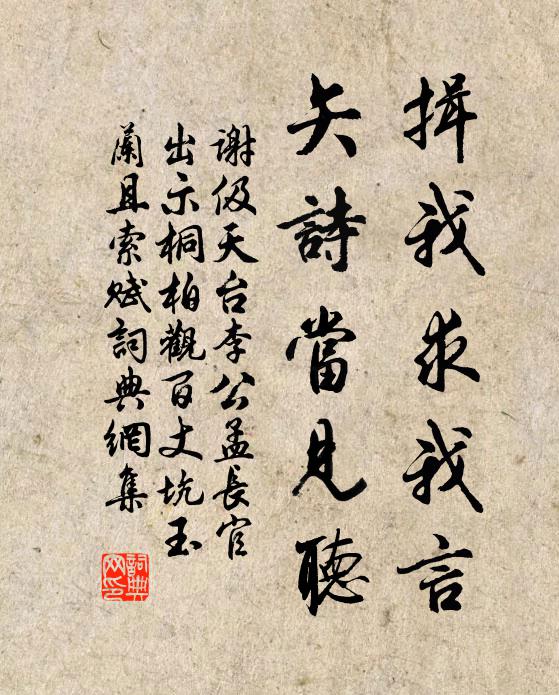 揖我求我言
矢詩當見聽
謝伋天台李公孟長官
出示桐柏觀百丈坑玉
蘭且索賦詞典網集
詞典網印